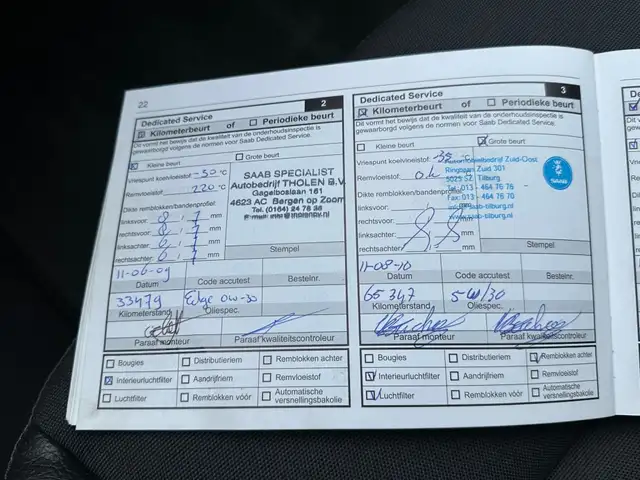 22
Dedicated Service 2
Kilometerbeurt of Periodieke beurt
Dit vormt het bewijs dat de kwaliteit van de onderhoudsinspectie is
gewaarborgd volgens de normen voor Saab Dedicated Service.
Kleine beurt Grote beurt
Vriespunt koelvloeistof: -30 °C
Remvloeistof: 220 °C
SAAB SPECIALIST
Autobedrijf THOLEN B.V.
Gagelboslaan 161
4623 AC Bergen op Zoom
Tel. (0164) 24 78 38
Dikte remblokken/bandenprofiel:
linksvoor: 8 / 7 mm
rechtsvoor: 8 / 7 mm
linksachter: 6 / 7 mm
rechtsachter: 6 / 7 mm
Stempel
11-06-09
Datum Code accutest Bestelnr.
33479 Edge 0W-30
Kilometerstand Oliespec.
Paraaf monteur Paraaf kwaliteitscontroleur
Bougies Distributieriem Remblokken achter
Interieurluchtfilter Aandrijfriem Remvloeistof
Luchtfilter Remblokken vóór Automatische
versnellingsbakolie
Dedicated Service 3
Kilometerbeurt of Periodieke beurt
Dit vormt het bewijs dat de kwaliteit van de onderhoudsinspectie is
gewaarborgd volgens de normen voor Saab Dedicated Service.
Kleine beurt Grote beurt
Vriespunt koelvloeistof: -38
Remvloeistof: ok
Automobielbedrijf Zuid-Oost
Ringbaan Zuid 301
Tilburg
Tel: 013 - 464 76 76
Fax: 013 - 464 76 70
Dikte remblokken/bandenprofiel:
linksvoor: mm
rechtsvoor: mm
linksachter: mm
rechtsachter: mm
Stempel
11-08-10
Datum Code accutest Bestelnr.
65347 5W/30
Kilometerstand Oliespec.
Paraaf monteur Paraaf kwaliteitscontroleur
Bougies Distributieriem Remblokken achter
Interieurluchtfilter Aandrijfriem Remvloeistof
Luchtfilter Remblokken vóór Automatische
versnellingsbakolie